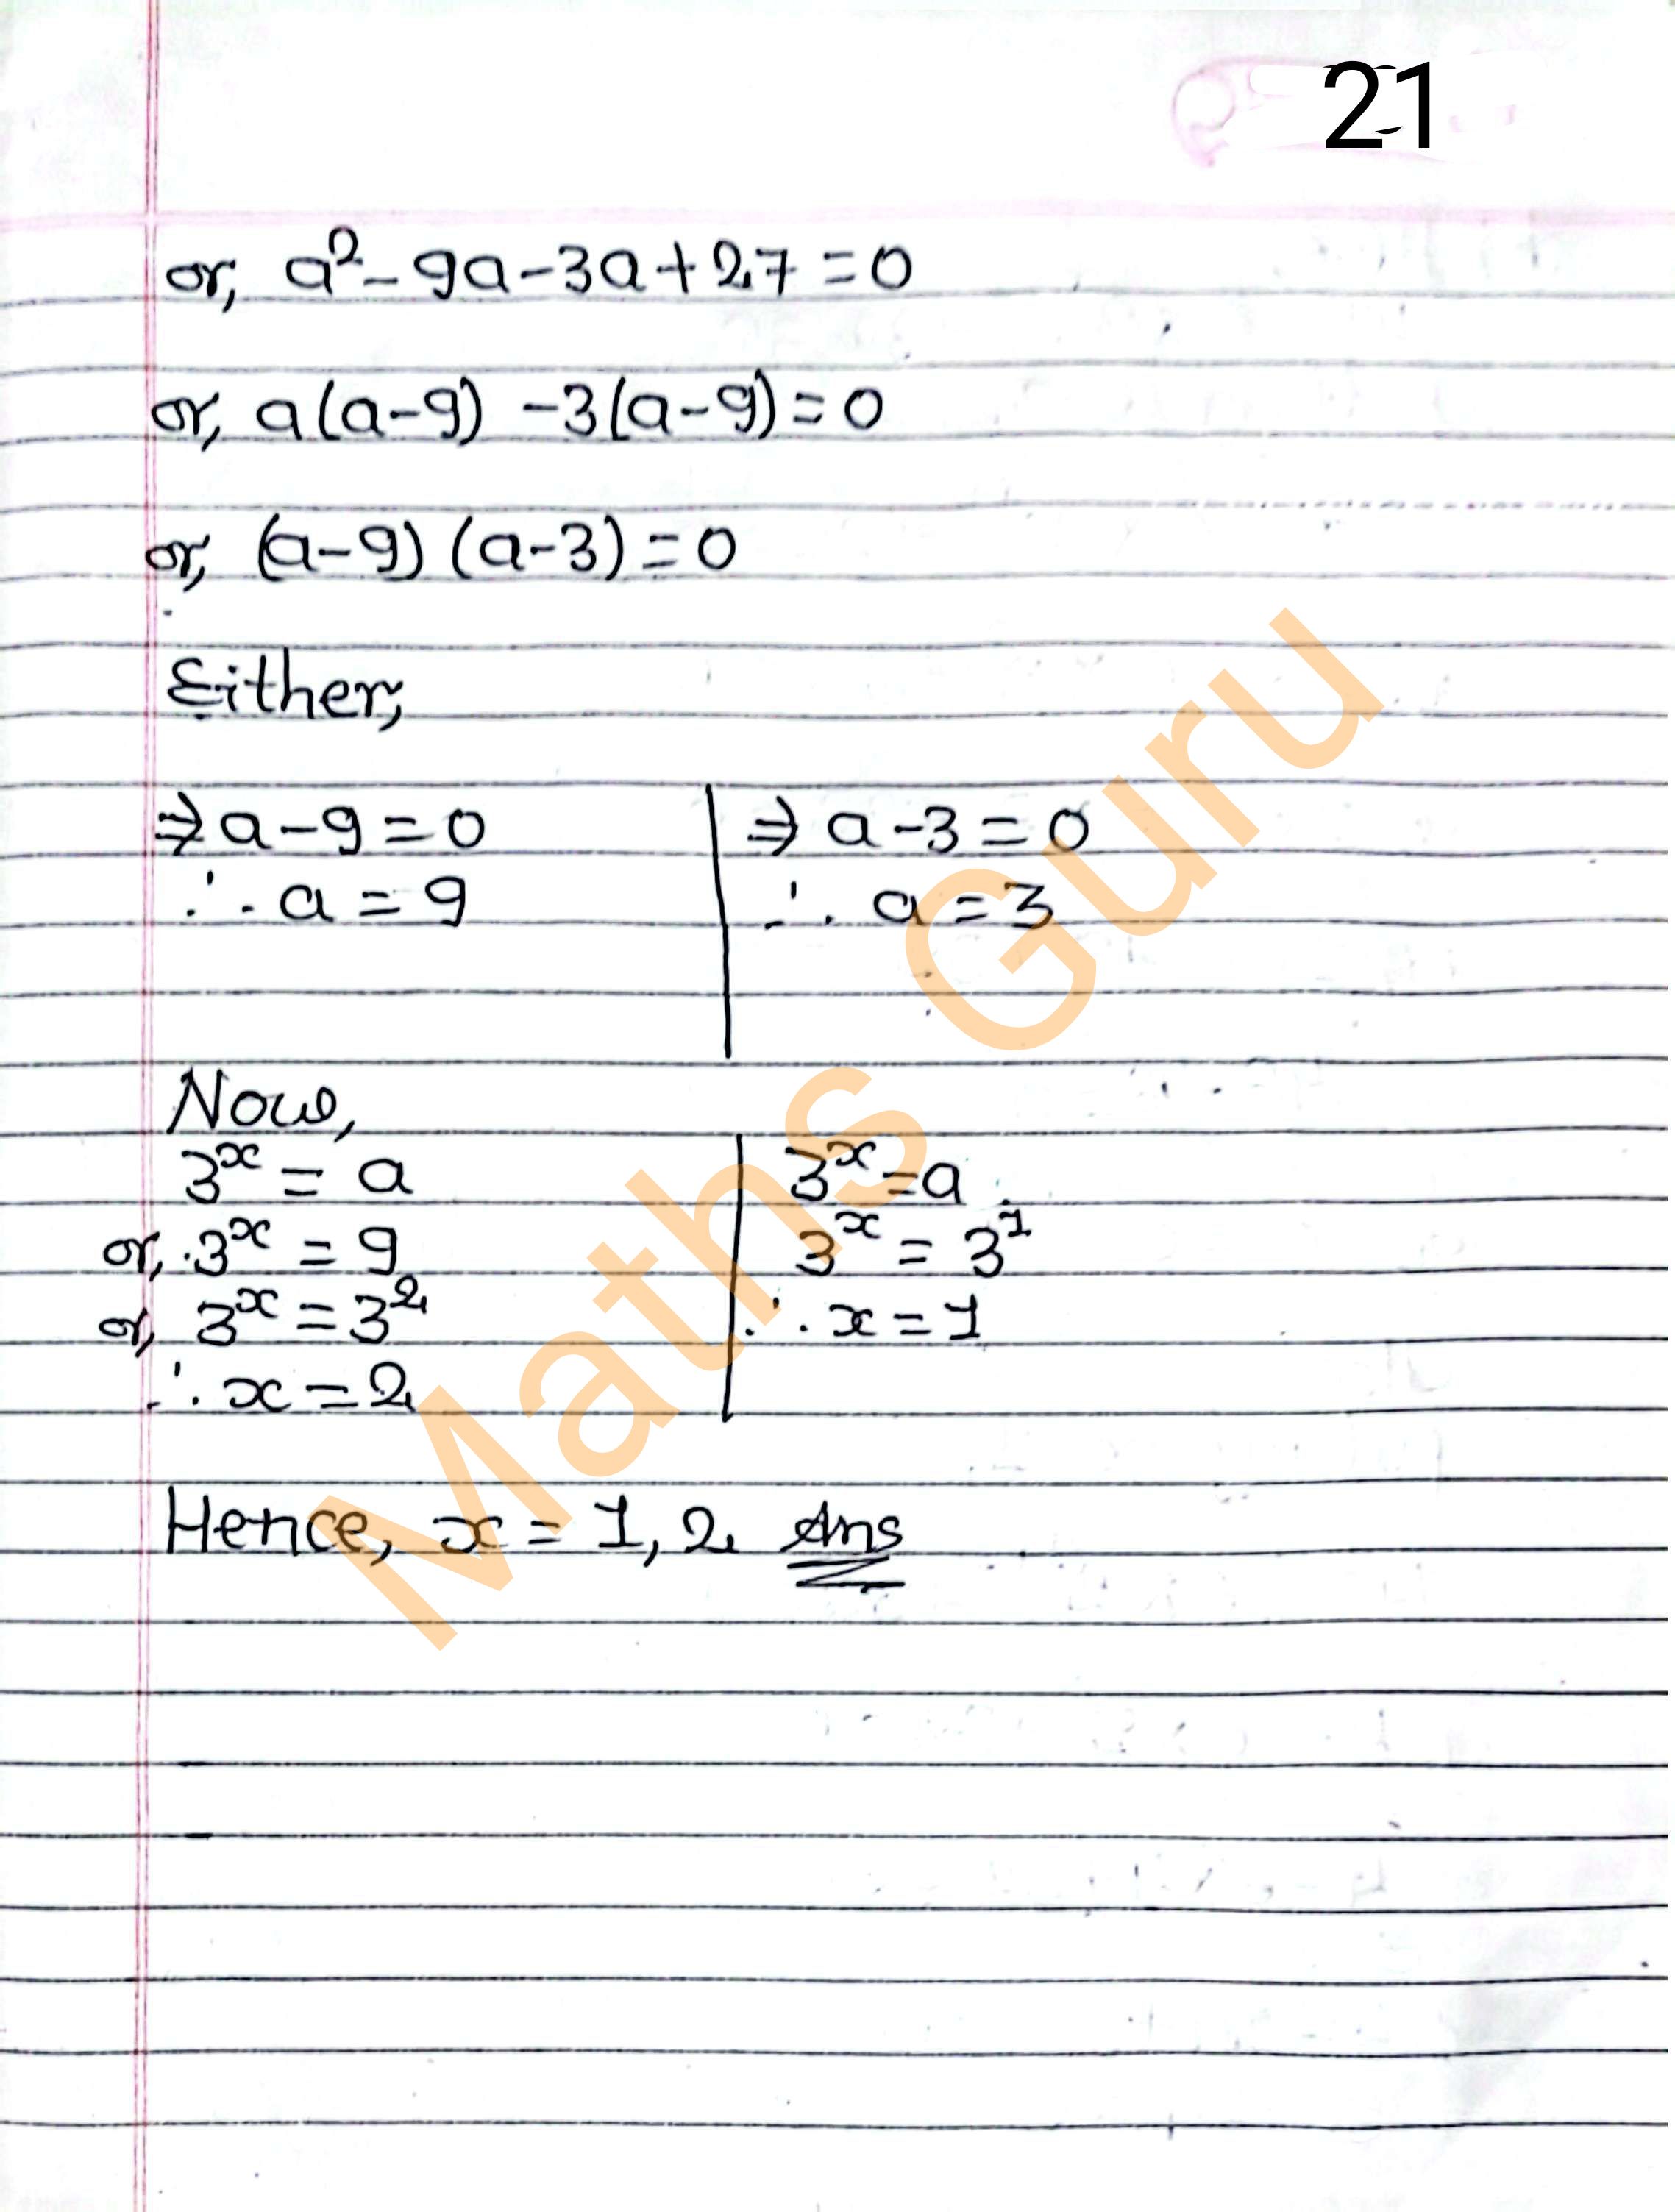 21
or, a² - 9a - 3a + 27 = 0
or, a(a-9) -3(a-9) = 0
or, (a-9) (a-3) = 0
Either,
⇒ a - 9 = 0 ⇒ a - 3 = 0
∴ a = 9 ∴ a = 3
Now,
3ˣ = a 3ˣ = a
or, 3ˣ = 9 3ˣ = 3¹
or, 3ˣ = 3² ∴ x = 1
∴ x = 2
Hence, x = 1, 2 Ans
Maths Guru